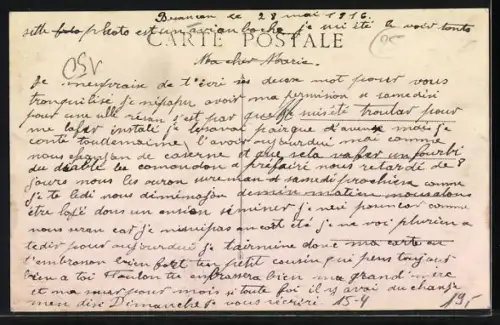 Besancon le 28 mai 1916
sette photo est un avion boche je mi été le voir tonto
CARTE POSTALE
Ma cher Marie
Je menpraix de t'écri ses deux mot pour vous
tranquilisé je népapu avoir ma permision se samedi
pour une ville réson s'est par que mi été troutar pour
me la fer instali je lesaval pairque d'avense mois je
conté toudemaine l'avoir aujourdui moi comme
nous chanjon de caserne et que sela vafer un fourbi
du diable le comandan a préfairé nous retardé de 8
jours nous les auron surement samedi prochien comme
je te ledi nous déménajon demin matien nous alons
être lojé dans un ensien séminer je neré pouricar comme
nous seran car je nisuipas encort été je ne voi plurien a
te dir pour aujourdui je tairmine donc ma carte en
t'embrasan bien fort ton petit cousin qui pens toujour
bien a toi Toulon tu enbrasera bien ma grand'mère
et ma sœur pour mois si toute foi il y avai du change
men disi Dimanche je vous récriré 15-4
19,-